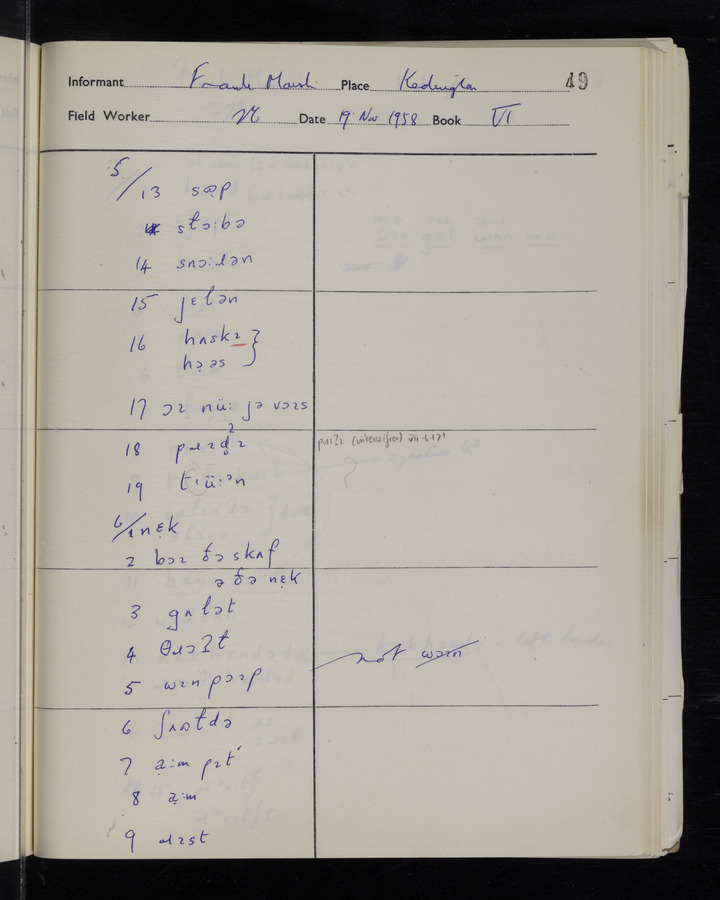 Informant Frank Marsh Place Kedington 49
Field Worker Date 19 Nov 1958 Book VI
5/13 sæp
stɔ:bə
14 snɔ:ɹən
15 jɛlən
16 hʌskɪ
17 ɔɪ nü: jə vɔɪs
18
pɹɪʔɪ (intensifier) VII·6·17'
19
6/1 nɛk
2 bɔɪ ðə skʌf
ə ðə nɛk
3 gʌlət
4 θɹɔʔt
5 wɪnpɔɪp not
6 ʃʌɒtdə
7 a:m pɪt
8 a:m
9 ɹɪst